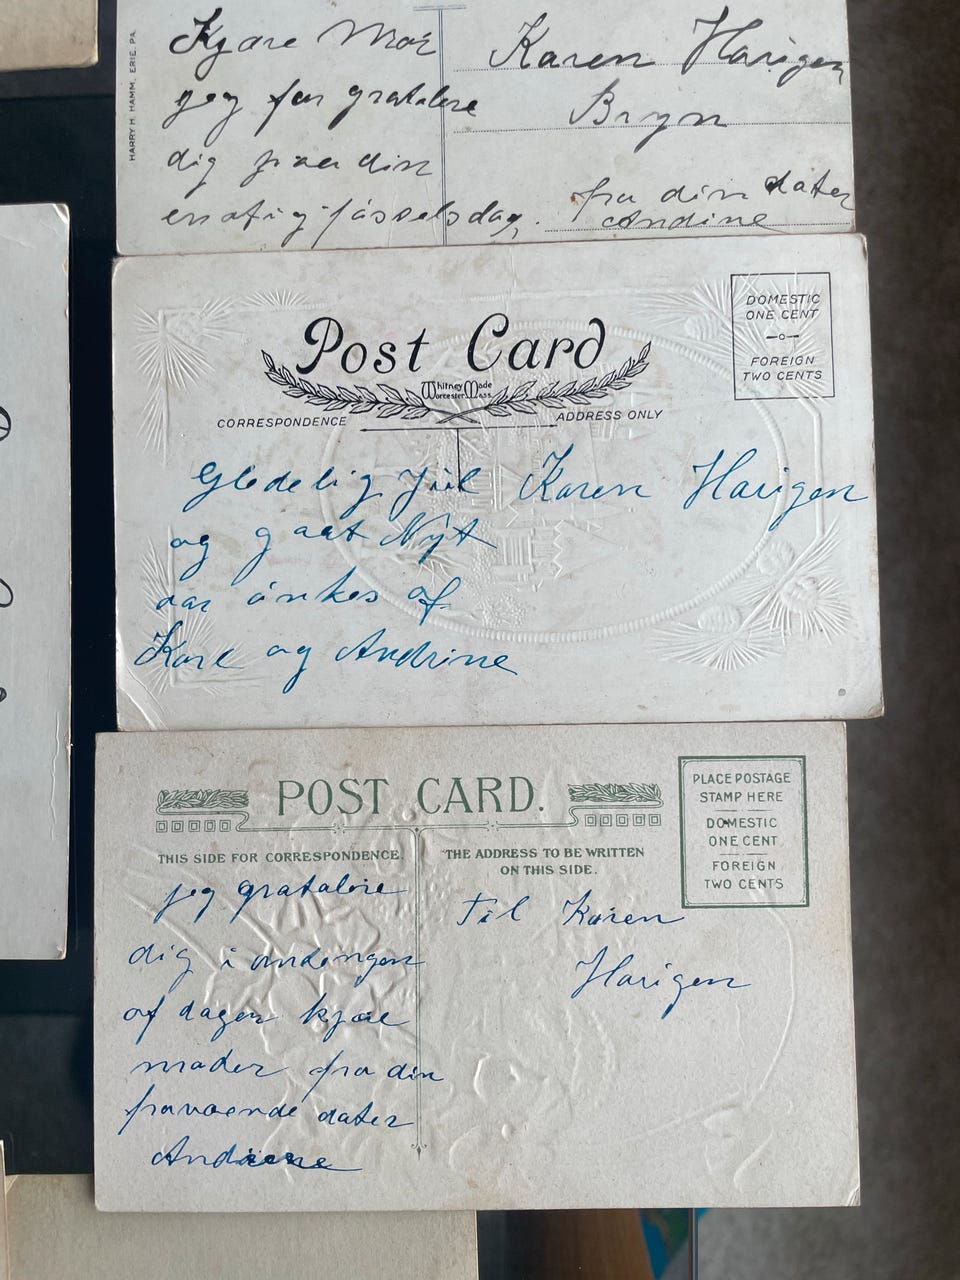 HARRY H. HAMM, ERIE, PA.
Kjære Mor
jeg for gratolere
dig paa din
fösselsdag.
Karen Harigen
Bryn
fra din dåter
Andine
Post Card
Whitney Made
Worcester Mass
CORRESPONDENCE
ADDRESS ONLY
DOMESTIC
ONE CENT
FOREIGN
TWO CENTS
Gledelig Jul
og gaat Nyt
aar önkes af
Karl og Andrine
Karen Harigen
POST CARD.
THIS SIDE FOR CORRESPONDENCE.
THE ADDRESS TO BE WRITTEN
ON THIS SIDE.
PLACE POSTAGE
STAMP HERE
DOMESTIC
ONE CENT
FOREIGN
TWO CENTS
jeg gratolere
dig i andengen
af dagen kjære
moder fra din
fraværende dater
Andrine
Til Karen
Harigen